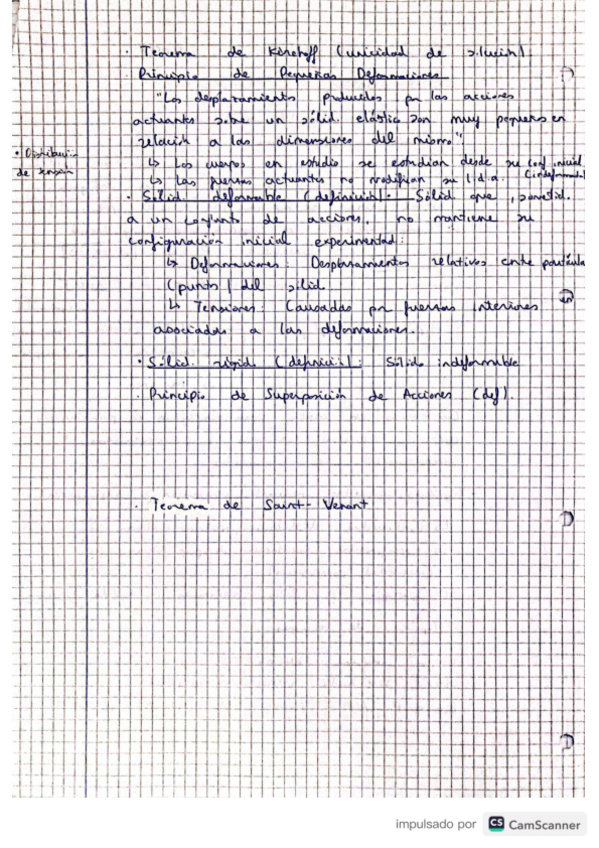 · Teorema de Kirchoff (unicidad de solución).
Principio de Pequeñas Deformaciones
"Los desplazamientos producidos por las acciones
actuantes sobre un sólido elástico son muy pequeños en
relación a las dimensiones del mismo"
• Distribución
de tensión
↳ Los cuerpos en estudio se estudian desde su conf. inicial
(indeformada)
↳ Las fuerzas actuantes no modifican su l.d.a.
· Sólido deformable (definición): Sólido que, sometido
a un conjunto de acciones, no mantiene su
configuración inicial experimentad:
↳ Deformaciones: Desplazamientos relativos entre partículas
(puntos) del sólido
↳ Tensiones: Causadas por fuerzas interiores
asociadas a las deformaciones.
· Sólido rígido (definición): Sólido indeformable
· Principio de Superposición de Acciones (def).
· Teorema de Saint-Venant
impulsado por CS CamScanner